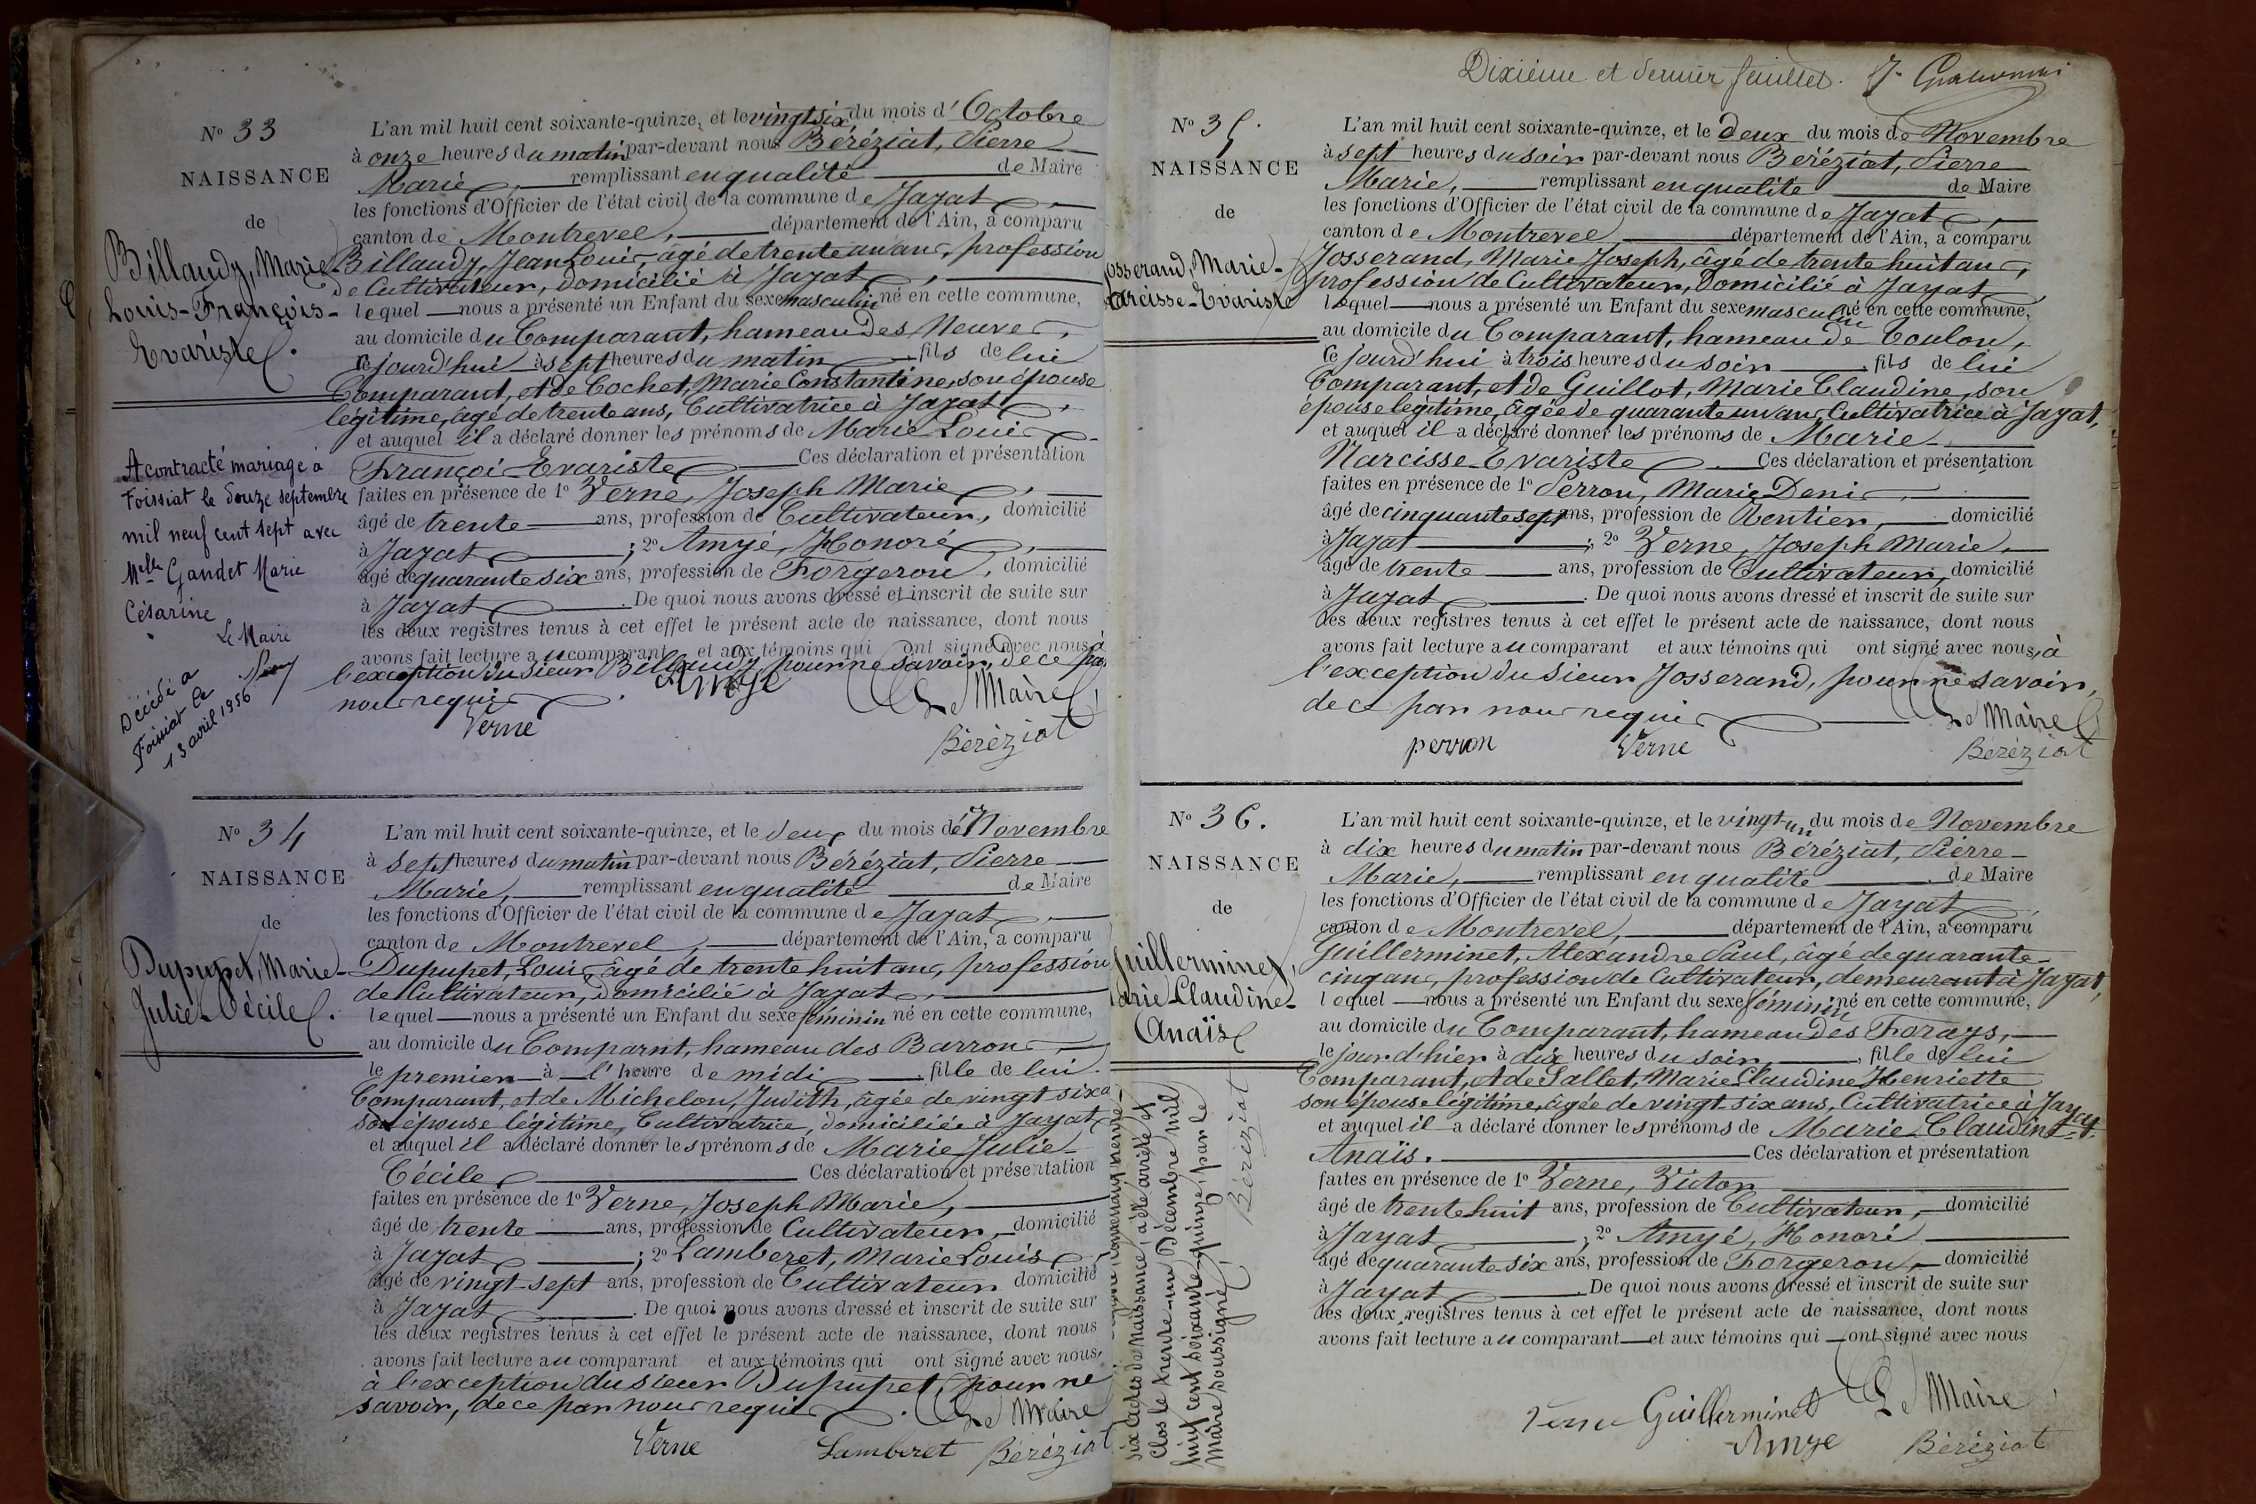 N° 33
NAISSANCE
de
Billaudy, Marie-
Louis-François-
Evariste.
L'an mil huit cent soixante-quinze, et le vingt six du mois d'Octobre
à onze heures du matin par-devant nous Béréziat, Pierre
Marie, remplissant en qualité de Maire
les fonctions d'Officier de l'état civil de la commune de Jayat,
canton de Montrevel, département de l'Ain, a comparu
Billaudy, Jean Louis, âgé de trente un ans, profession
de Cultivateur, domicilié à Jayat,
lequel nous a présenté un Enfant du sexe masculin né en cette commune,
au domicile du Comparant, hameau des Neuves,
ce jourd'hui à sept heures du matin fils de lui
Comparant, et de Cochet, Marie Constantine, son épouse
légitime, âgé de trente ans, Cultivatrice à Jayat,
et auquel il a déclaré donner les prénoms de Marie Louis
François Evariste Ces déclaration et présentation
faites en présence de 1° Verne, Joseph Marie,
âgé de trente ans, profession de Cultivateur, domicilié
à Jayat ; 2° Amyé, Honoré,
âgé de quarante six ans, profession de Forgeron, domicilié
à Jayat. De quoi nous avons dressé et inscrit de suite sur
les deux registres tenus à cet effet le présent acte de naissance, dont nous
avons fait lecture au comparant et aux témoins qui ont signé avec nous à
l'exception du sieur Billaudy, pour ne savoir, de ce par
nous requis.
Amye Le Maire
Verne Béréziat
A contracté mariage à
Foissiat le douze septembre
mil neuf cent sept avec
Melle Gandet Marie
Césarine
Le Maire
Décédé à
Foissiat le
13 avril 1956
N° 34
NAISSANCE
de
Dupupet, Marie-
Julie-Cécile.
L'an mil huit cent soixante-quinze, et le deux du mois de Novembre
à sept heures du matin par-devant nous Béréziat, Pierre
Marie, remplissant en qualité de Maire
les fonctions d'Officier de l'état civil de la commune de Jayat,
canton de Montrevel, département de l'Ain, a comparu
Dupupet, Louis, âgé de trente huit ans, profession
de Cultivateur, domicilié à Jayat,
lequel nous a présenté un Enfant du sexe féminin né en cette commune,
au domicile du Comparnt, hameau des Barrons
le premier à l'heure de midi, fille de lui
Comparant, et de Michelon, Judith, âgée de vingt six a
son épouse légitime, Cultivatrice, domiciliée à Jayat,
et auquel il a déclaré donner les prénoms de Marie Julie-
Cécile Ces déclaration et présentation
faites en présence de 1° Verne, Joseph Marie,
âgé de trente ans, profession de Cultivateur, domicilié
à Jayat ; 2° Lamberet, Marie Louis
âgé de vingt-sept ans, profession de Cultivateur domicilié
à Jayat. De quoi nous avons dressé et inscrit de suite sur
les deux registres tenus à cet effet le présent acte de naissance, dont nous
avons fait lecture au comparant et aux témoins qui ont signé avec nous,
à l'exception du sieur Dupupet, pour ne
savoir, de ce par nous requis. Le Maire
Verne Lamberet Béréziat
Dixième et dernier feuillet.
N° 35.
NAISSANCE
de
Josserand, Marie-
Narcisse-Evariste
L'an mil huit cent soixante-quinze, et le deux du mois de Novembre
à sept heures du soir par-devant nous Béréziat, Pierre
Marie, remplissant en qualité de Maire
les fonctions d'Officier de l'état civil de la commune de Jayat,
canton de Montrevel, département de l'Ain, a comparu
Josserand, Marie Joseph, âgé de trente huit ans,
profession de Cultivateur, Domicilié à Jayat
lequel nous a présenté un Enfant du sexe masculin né en cette commune,
au domicile du Comparant, hameau de Toulon,
ce jourd'hui à trois heures du soir, fils de lui
Comparant, et de Guillot, Marie Claudine, son
épouse légitime, âgée de quarante un ans, Cultivatrice à Jayat,
et auquel il a déclaré donner les prénoms de Marie-
Narcisse-Evariste. Ces déclaration et présentation
faites en présence de 1° Perron, Marie Denis,
âgé de cinquante sept ans, profession de Rentier, domicilié
à Jayat ; 2° Verne, Joseph Marie,
âgé de trente ans, profession de Cultivateur, domicilié
à Jayat. De quoi nous avons dressé et inscrit de suite sur
les deux registres tenus à cet effet le présent acte de naissance, dont nous
avons fait lecture au comparant et aux témoins qui ont signé avec nous, à
l'exception du sieur Josserand, pour ne savoir,
de ce par nous requis Le Maire
perron Verne Béréziat
N° 36.
NAISSANCE
de
Guillerminet,
Marie-Claudine-
Anaïs
L'an mil huit cent soixante-quinze, et le vingt un du mois de Novembre
à dix heures du matin par-devant nous Béréziat, Pierre-
Marie, remplissant en qualité de Maire
les fonctions d'Officier de l'état civil de la commune de Jayat
canton de Montrevel, département de l'Ain, a comparu
Guillerminet, Alexandre Paul, âgé de quarante-
cinq ans, profession de Cultivateur, demeurant à Jayat,
lequel nous a présenté un Enfant du sexe féminin né en cette commune,
au domicile du Comparant, hameau des Forays,
le jour d'hier à dix heures du soir, fille de lui
Comparant, et de Sallet, Marie Claudine Henriette
son épouse légitime, âgée de vingt six ans, Cultivatrice à Jayat
et auquel il a déclaré donner les prénoms de Marie Claudine
Anaïs. Ces déclaration et présentation
faites en présence de 1° Verne, Victor
âgé de trente huit ans, profession de Cultivateur, domicilié
à Jayat ; 2° Amyé, Honoré
âgé de quarante six ans, profession de Forgeron, domicilié
à Jayat. De quoi nous avons dressé et inscrit de suite sur
les deux registres tenus à cet effet le présent acte de naissance, dont nous
avons fait lecture au comparant et aux témoins qui ont signé avec nous
Verne Guillerminet Le Maire
Amye Béréziat
six actes de Naissance, a été arrêté et
Clos le trente-un Décembre mil
huit cent soixante-quinze, par le
Maire soussigné,
Béréziat